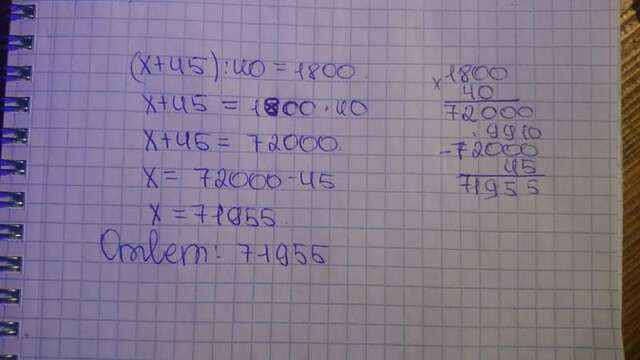 (x+45):40=1800.
x+45 = 1800·40
x+45 = 72000.
x = 72000-45
x = 71955.
Ответ: 71955
x 1800
40
72000
. 9910
-72000
45
71955